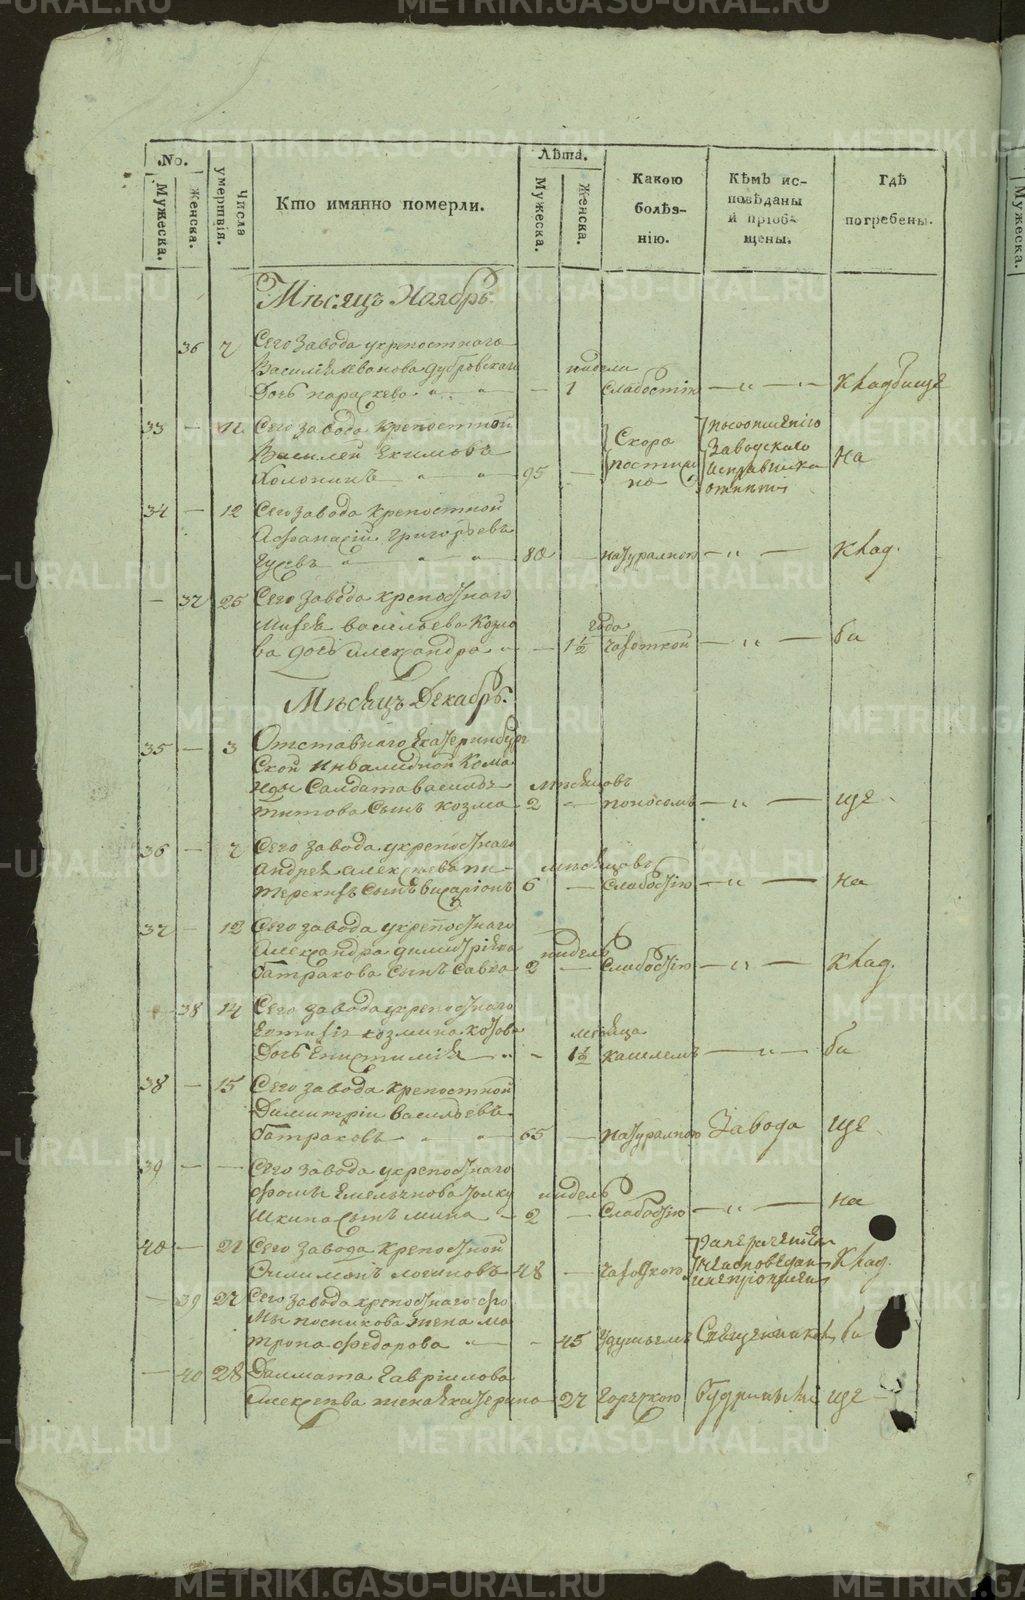 METRIKI.GASO-URAL.RU
No.
Мужеска.
Женска.
Числа умертвія.
Кто имянно померли.
Лѣта.
Мужеска.
Женска.
Какою болѣзнію.
Кѣмъ исповѣданы и пріобщены.
Гдѣ погребены.
Мѣсяцъ Ноябрь.
36 2 Сего завода укрепостнаго
Василія Иванова Дубровскаго недели
Дочь параскева — 1 слабостію — „ — „ кладбище
33 — 11 Сего завода крепостной
Василей Екимовъ Скоро постижно
Колонинъ 95 — Заводскаго исправника на
34 — 12 Сего завода крепостной
Афанасій Григорьевъ
Гусевъ 80 — натуралною — „ — клад.
— 37 25 Сего завода крепостнаго
васильева Козло года
ва дочь александра — 1½ чахоткой — „ — би
Мѣсяцъ Декабрь.
35 — 3 Отставнаго Екатеринбург
ской инвалидной кома
нды Салдата василья мѣсяцовъ
титова сынъ козма 2 „ поносомъ — „ — ще
36 — 7 Сего завода укрепостнаго
андрея алексеева пи мѣсяцовъ
терскихъ сынъ виссаріонъ 6 — слабостію — „ — на
37 — 12 Сего завода укрепостнаго
александра димитріева недель
батракова сынъ савва 2 — слабостію — „ — клад.
38 14 Сего завода укрепостнаго
козмина месяца
Дочь Епистимія „ — 1½ кашлемъ — „ — би
38 — 15 Сего завода крепостной
Димитрій васильевъ
батраковъ 65 — натуралною Завода ще
39 — — Сего завода укрепостнаго
фомы Емельянова недель
сынъ мина 2 — слабостію — „ — на
40 — 21 Сего завода крепостной
Филимонъ логиновъ 48 — чахоткою клад.
— 39 27 Сего завода крепостнаго фо
мы посникова жена ма
трона федорова — 45 удушьемъ Священникомъ би
— 40 28 Далмата Гавриилова
алексеева жена Екатерина — 27 горячкою ще